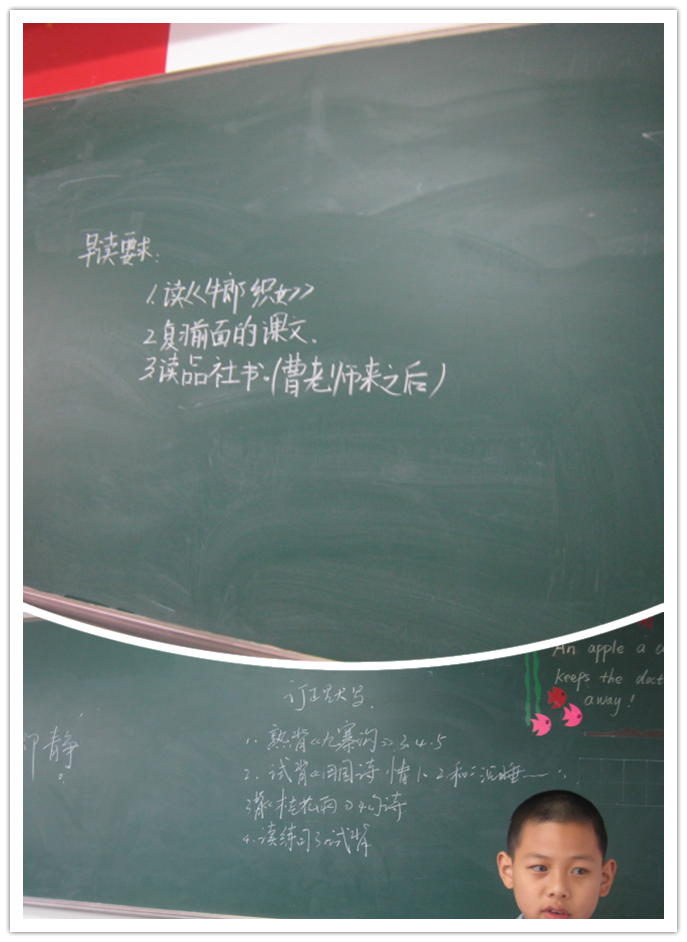 早读要求:
1.读《牛郎织女》
2.复习前面的课文.
3.读品社书.(曹老师来之后)
An apple a
keeps the doct
away!
订正默写.
静
1.熟背《九寨沟》3.4.5
2.试背《田园诗情》1.2和“沉睡——”.
3.背《桂花雨》
4.读练习3 试背